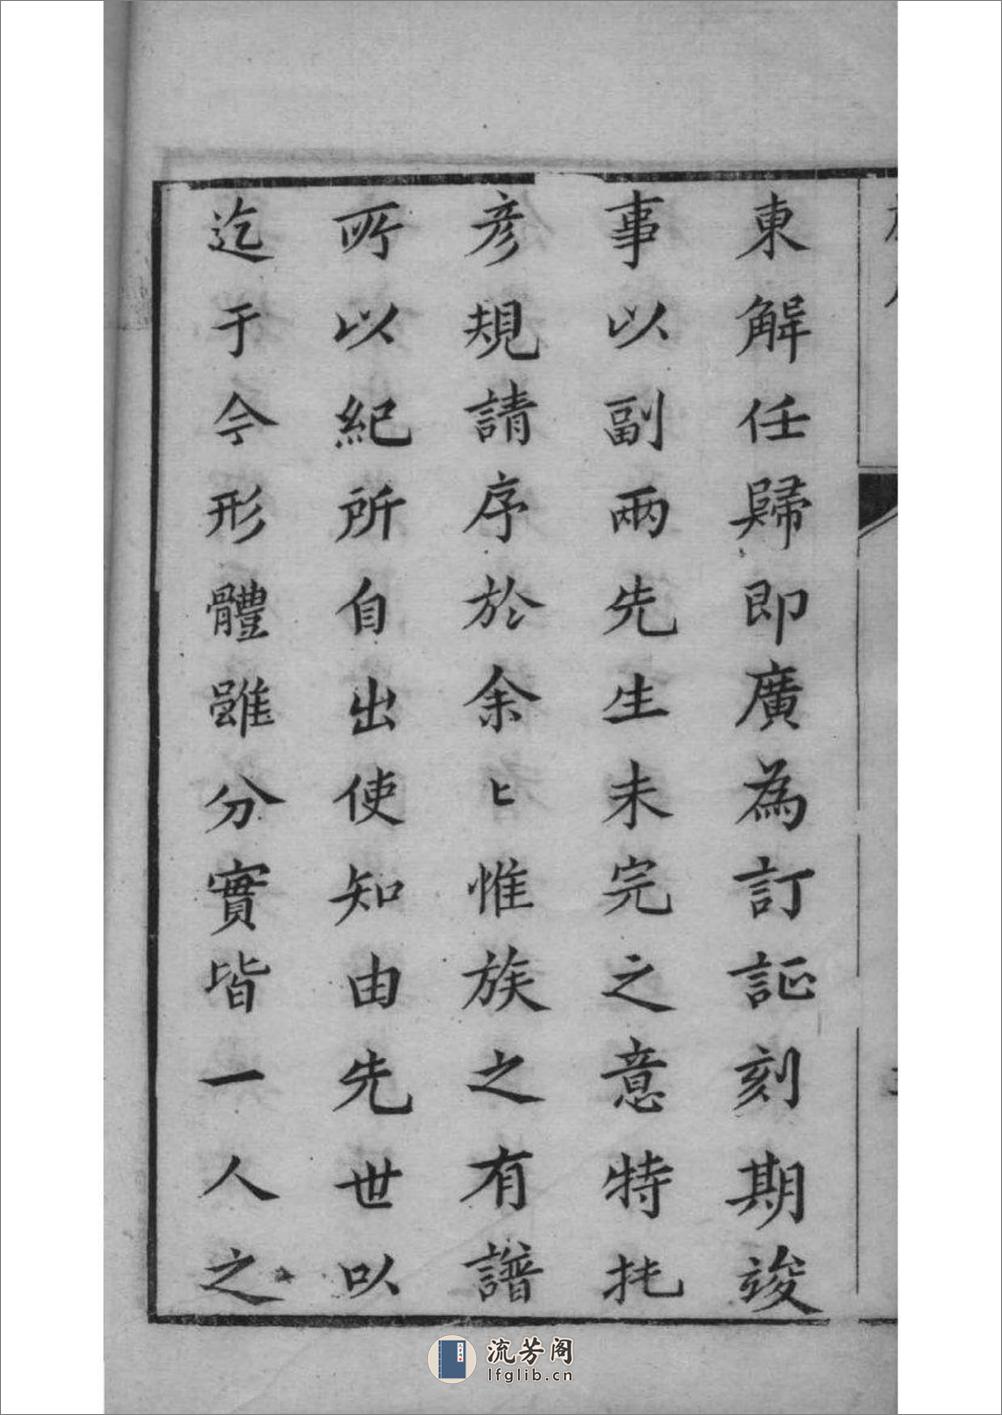 東解任歸即廣為訂証刻期竣
事以副兩先生未完之意特托
彥規請序於余㇄惟族之有譜
所以紀所自出使知由先世以
迄于今形體雖分實皆一人之
流芳阁
lfglib.cn